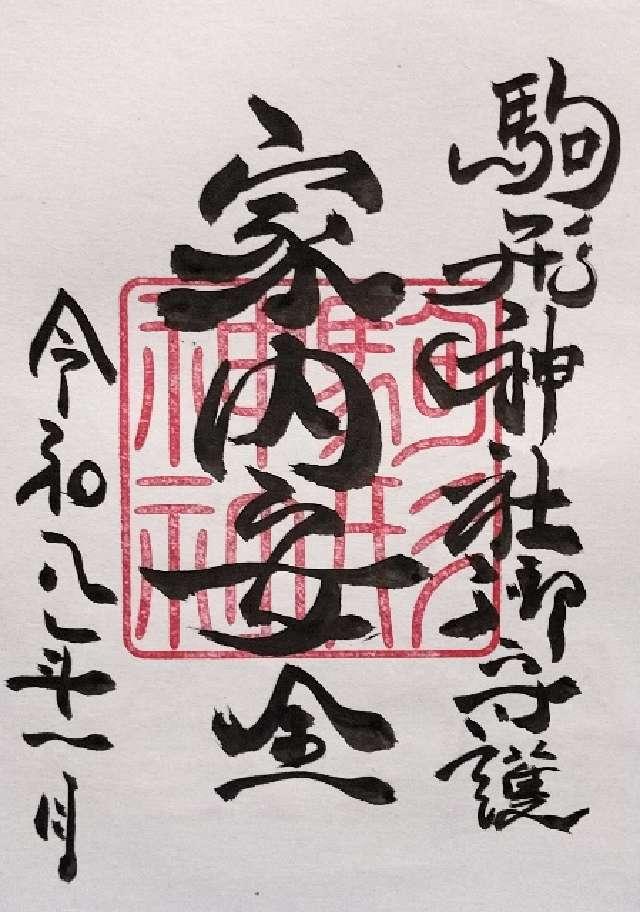 駒形神社御守護
家内安全
令和八年一月
駒形神社